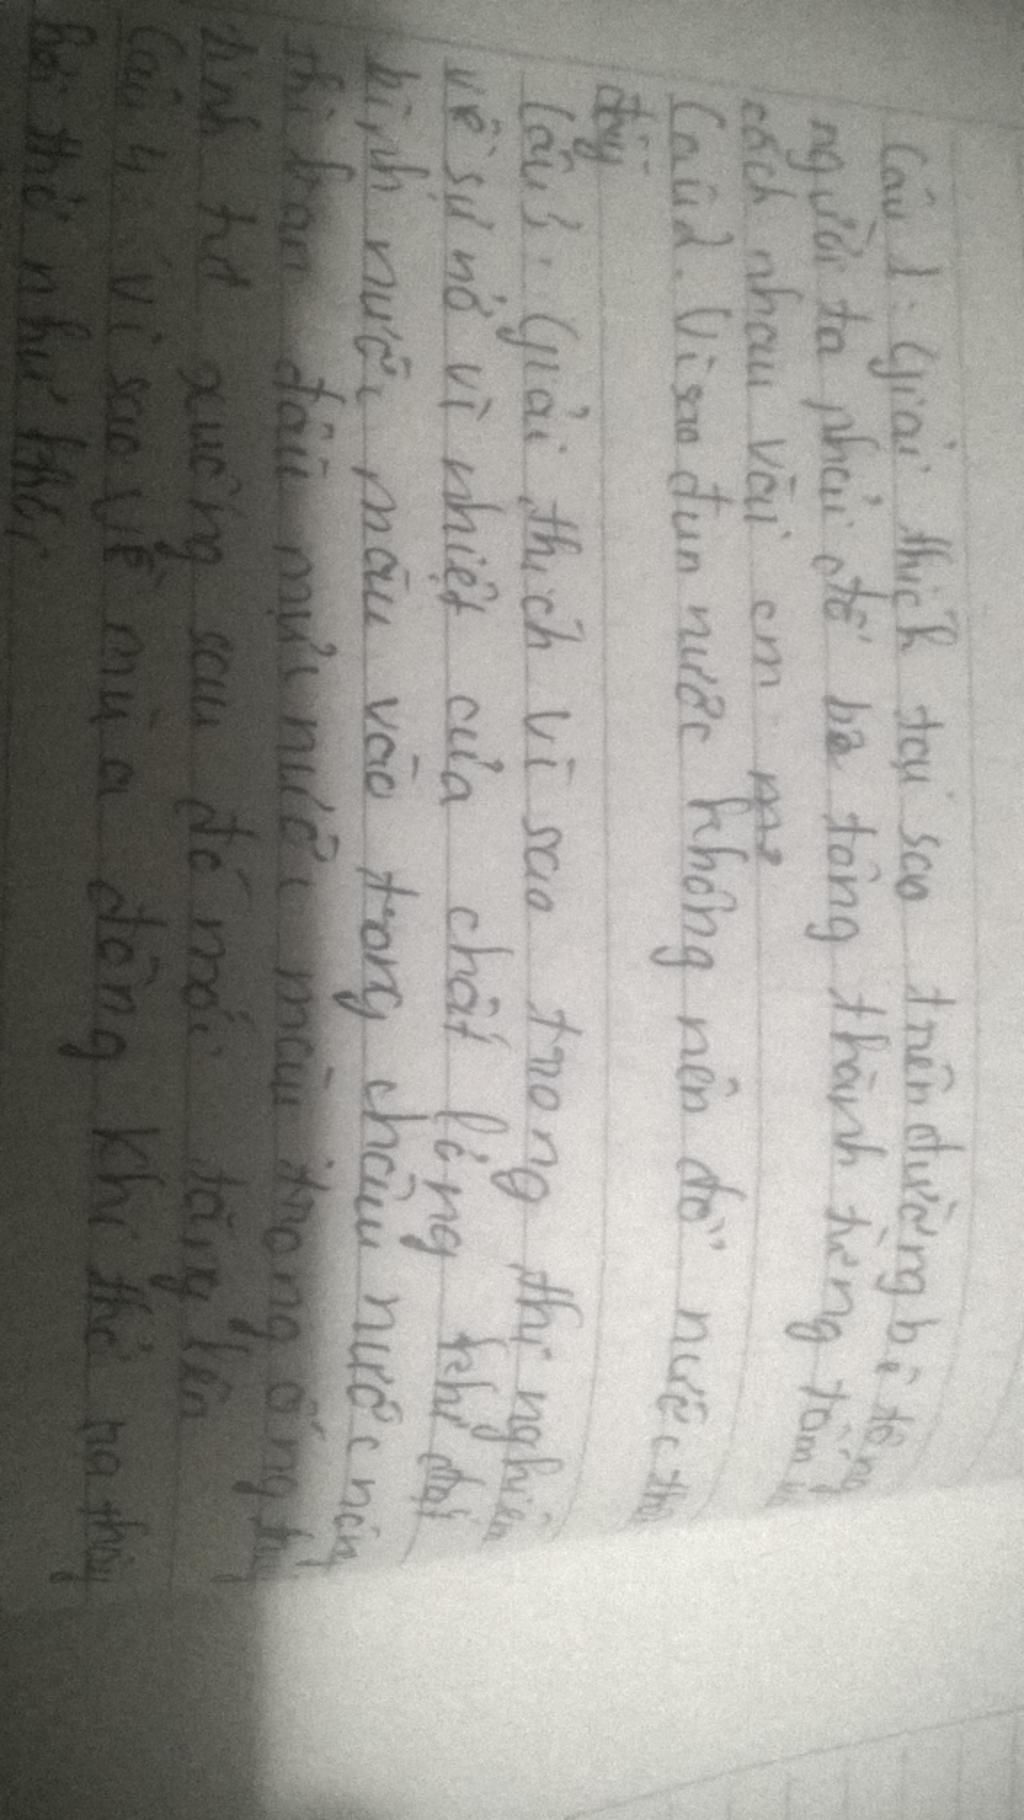 Câu 1: Giải thích tại sao trên đường bê tông
người ta phải đổ bê tông thành từng tấm
cách nhau vài cm
Câu 2. Vì sao đun nước không nên đổ nước thật
đầy
Câu 3. Giải thích vì sao trong thí nghiệm
về sự nở vì nhiệt của chất lỏng khi đặt
bình nước màu vào trong chậu nước nóng
thì ban đầu mực nước màu trong ống thủy
tinh hạ xuống sau đó mới tăng lên
Câu 4: Vì sao về mùa đông khi thở ra thấy
hơi thở như khói